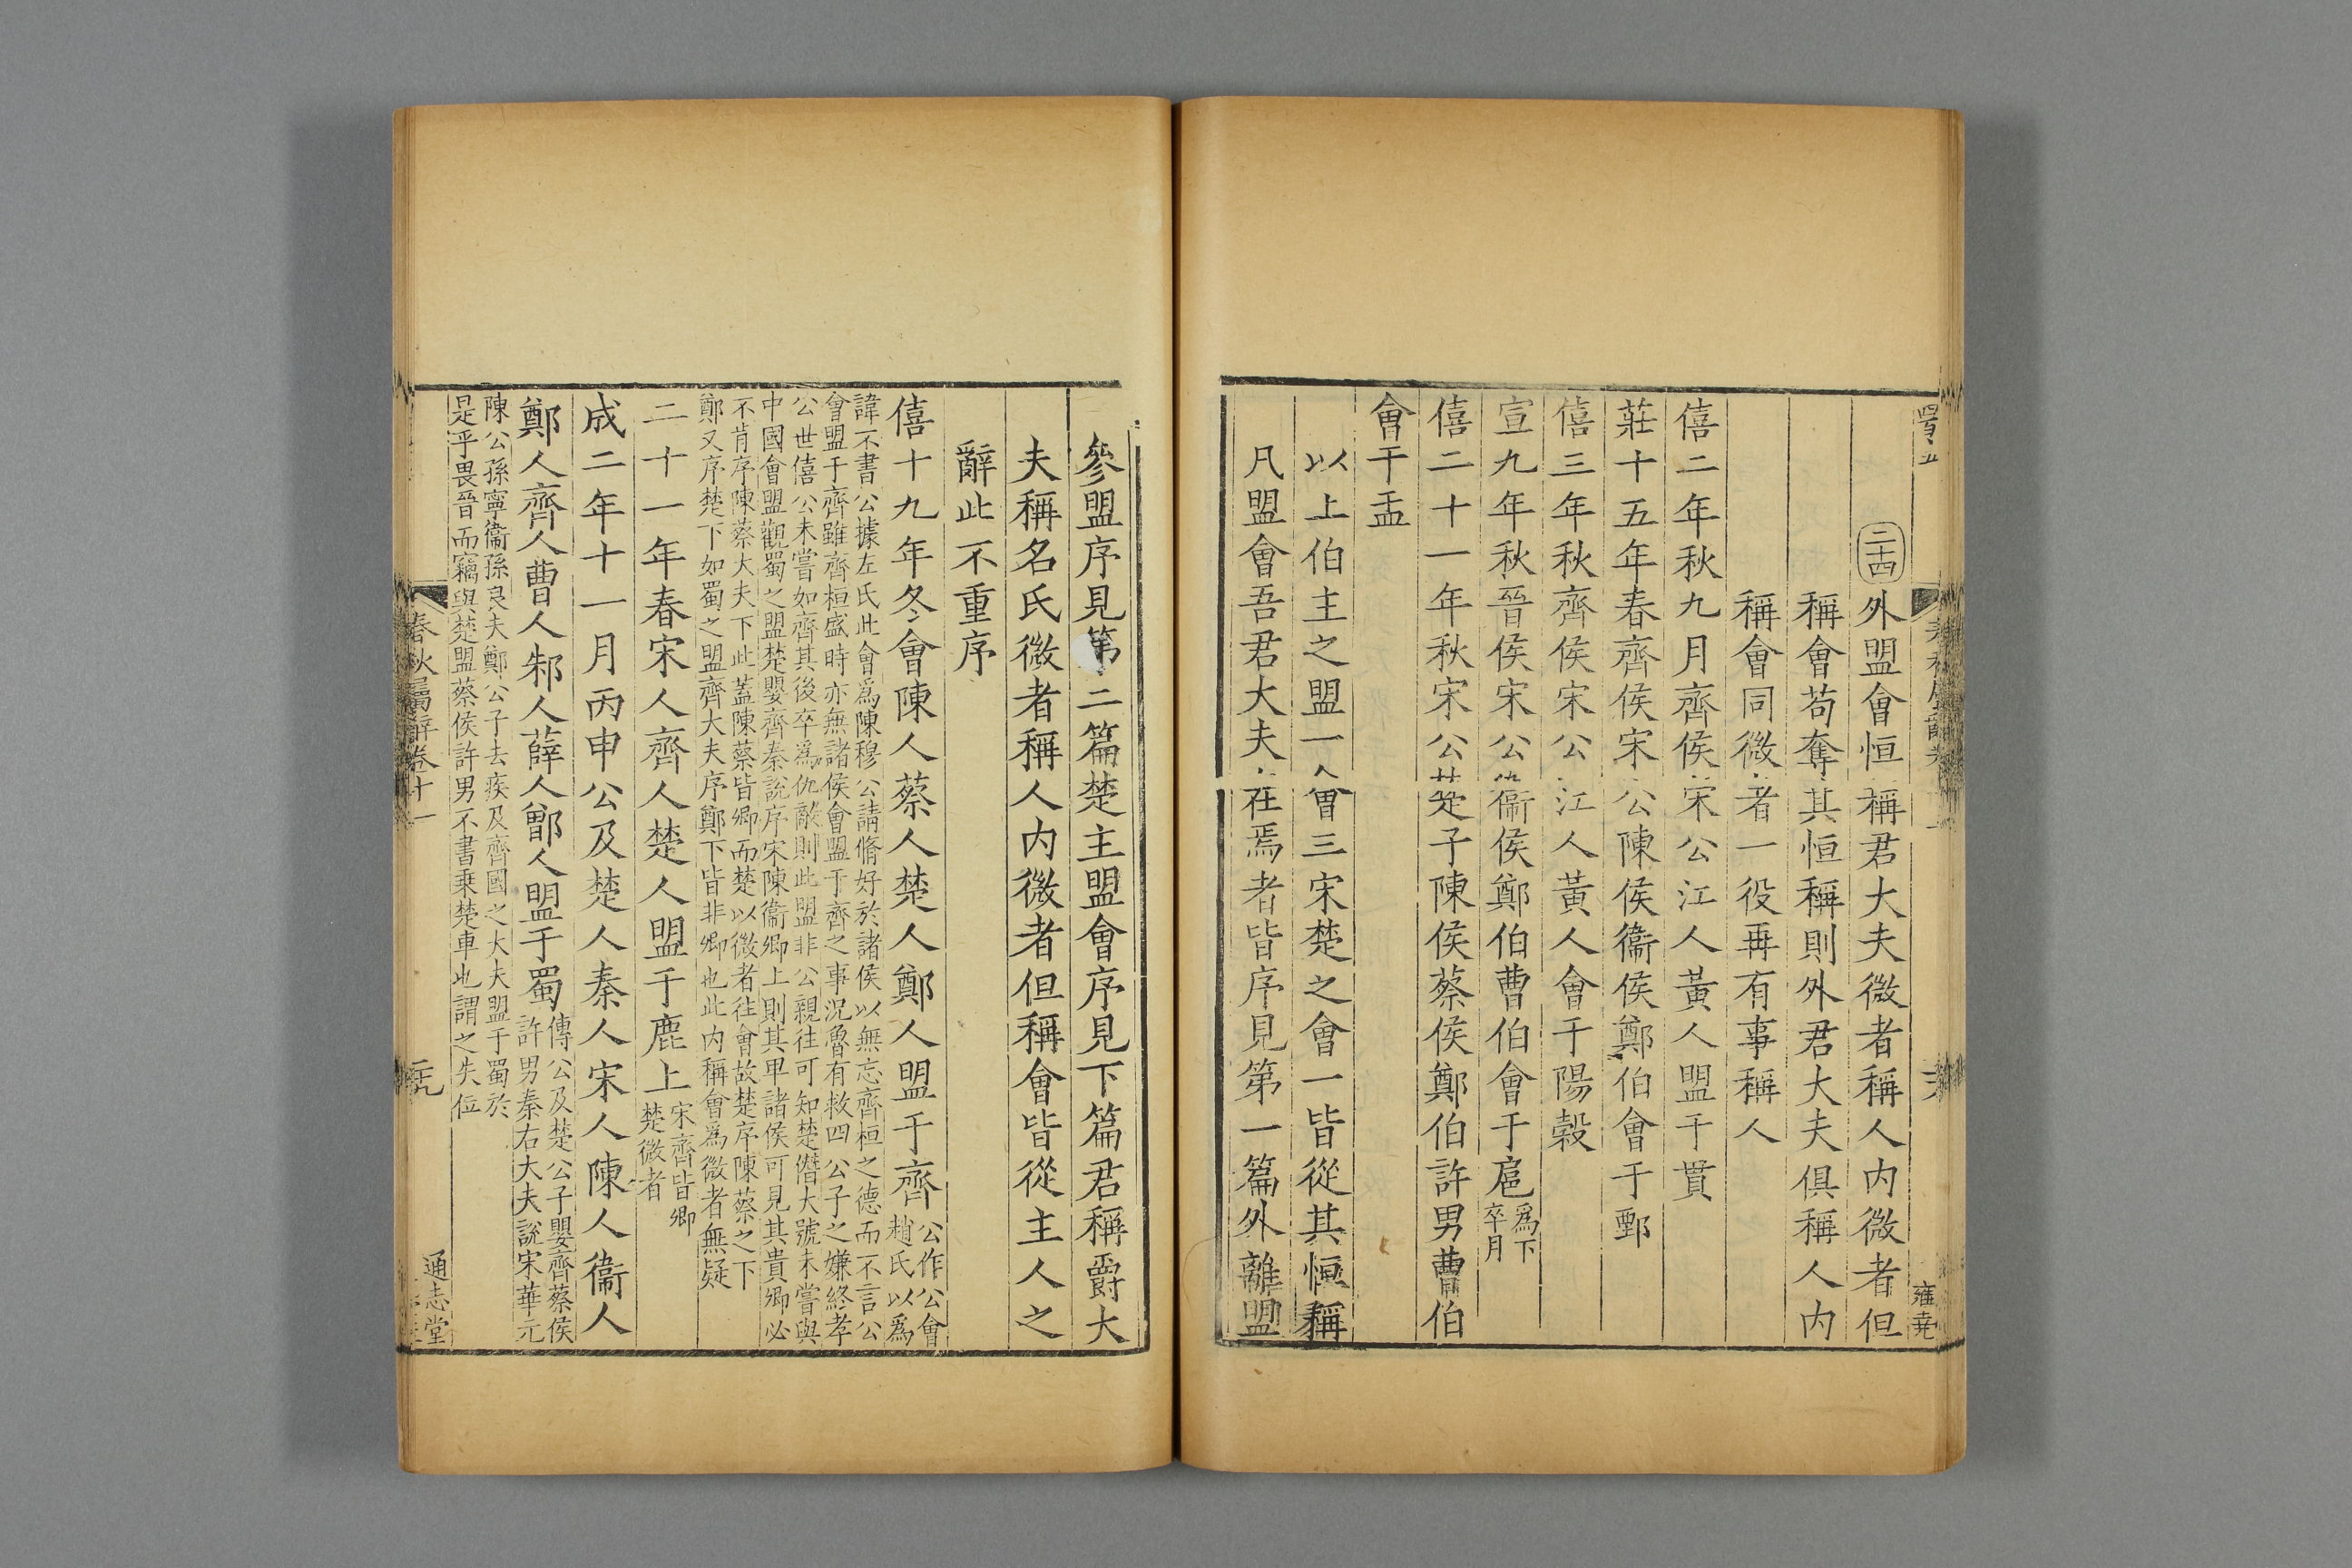 二十四 外盟會恒稱君大夫微者稱人内微者但
稱會苟奪其恒稱則外君大夫俱稱人内
稱會同微者一役再有事稱人
僖二年秋九月齊侯宋公江人黃人盟于貫
莊十五年春齊侯宋公陳侯衞侯鄭伯會于鄄
僖三年秋齊侯宋公江人黃人會于陽穀
宣九年秋晉侯宋公衞侯鄭伯曹伯會于扈 爲下卒月
僖二十一年秋宋公楚子陳侯蔡侯鄭伯許男曹伯
會于盂
以上伯主之盟一會三宋楚之會一皆從其恒稱
凡盟會吾君大夫在焉者皆序見第一篇外離盟
雍堯
參盟序見第二篇楚主盟會序見下篇君稱爵大
夫稱名氏微者稱人内微者但稱會皆從主人之
辭此不重序
僖十九年冬會陳人蔡人楚人鄭人盟于齊 公作公會
趙氏以爲
諱不書公據左氏此會爲陳穆公請脩好於諸侯以無忘齊桓之德而不言公
會盟于齊雖齊桓盛時亦無諸侯會盟于齊之事況魯有救四公子之嫌終孝
公世僖公未嘗如齊其後卒爲仇敵則此盟非公親往可知楚僭大號未嘗與
中國會盟觀蜀之盟楚嬰齊秦說序宋陳衞卿上則其畢諸侯可見其貴卿必
不肯序陳蔡大夫下此蓋陳蔡皆卿而楚以微者往會故楚序陳蔡之下
鄭又序楚下如蜀之盟齊大夫序鄭下皆非卿也此内稱會爲微者無疑
二十一年春宋人齊人楚人盟于鹿上 宋齊皆卿
楚微者
成二年十一月丙申公及楚人秦人宋人陳人衞人
鄭人齊人曹人邾人薛人鄫人盟于蜀 傳公及楚公子嬰齊蔡侯
許男秦右大夫說宋華元
陳公孫寧衞孫良夫鄭公子去疾及齊國之大夫盟于蜀於
是乎畏晉而竊與楚盟蔡侯許男不書乘楚車也謂之失位
春秋屬辭卷十一
二十九
通志堂